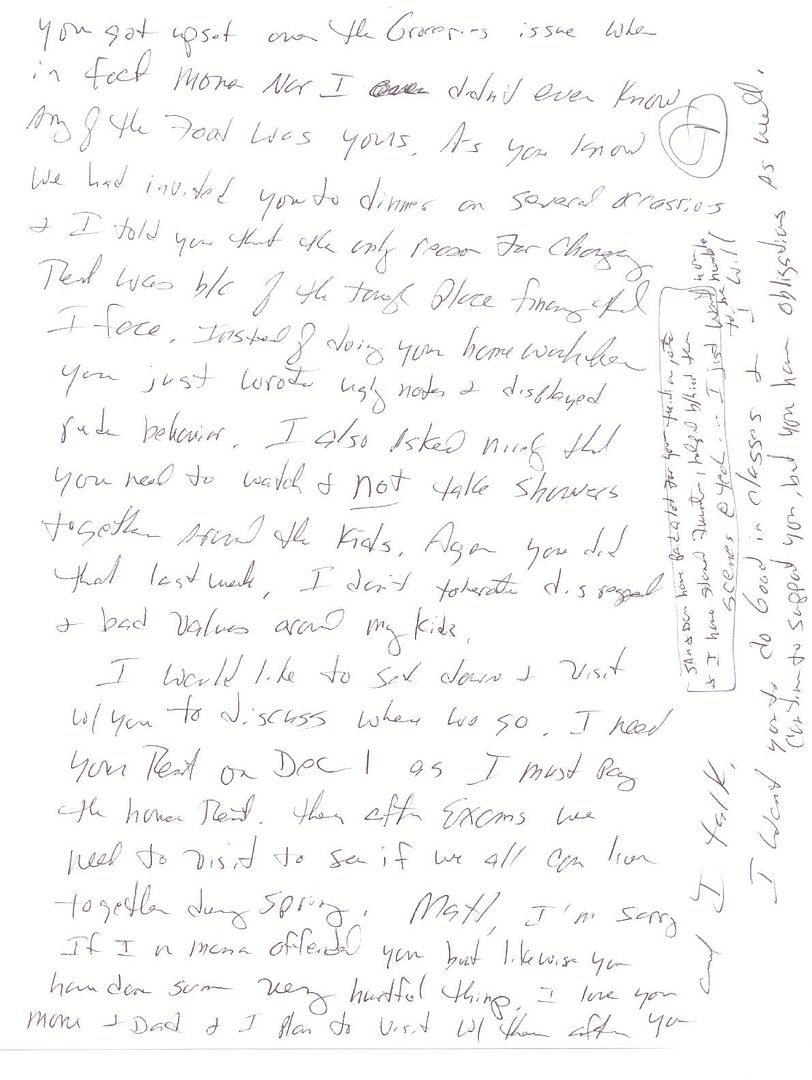 you got upset over the Groceries issue when
in fact Mona Nor I didn't even know
Any of the Food was yours. As you know
We had invited you to dinner on several occassions
& I told you that the only reason For Charging
Rent was b/c of the tough place financial
I face. Instead of doing your homework then
you just wrote ugly notes & displayed
rude behavior. I also Asked nicely that
you need to watch & not take showers
together around the Kids. Again you did
that last week, I don't tolerate disrespect
& bad values around my kids.
I would like to set down & visit
w/you to discuss where we go. I need
your Rent on Dec 1 as I must pay
the home Rent. then after Exams we
need to visit to see if we all can live
together during Spring. Matt, I'm sorry
If I or mona offended you but likewise you
have done some very hurtful things, I love you
mom & Dad & I plan to visit w/ them after you
and I talk.
I Want you to do Good in classes & I will
Continue to support you, but you have obligations As well.
have paid a lot For your
& I have helped behind the
scenes @ Tech... I just want
to be